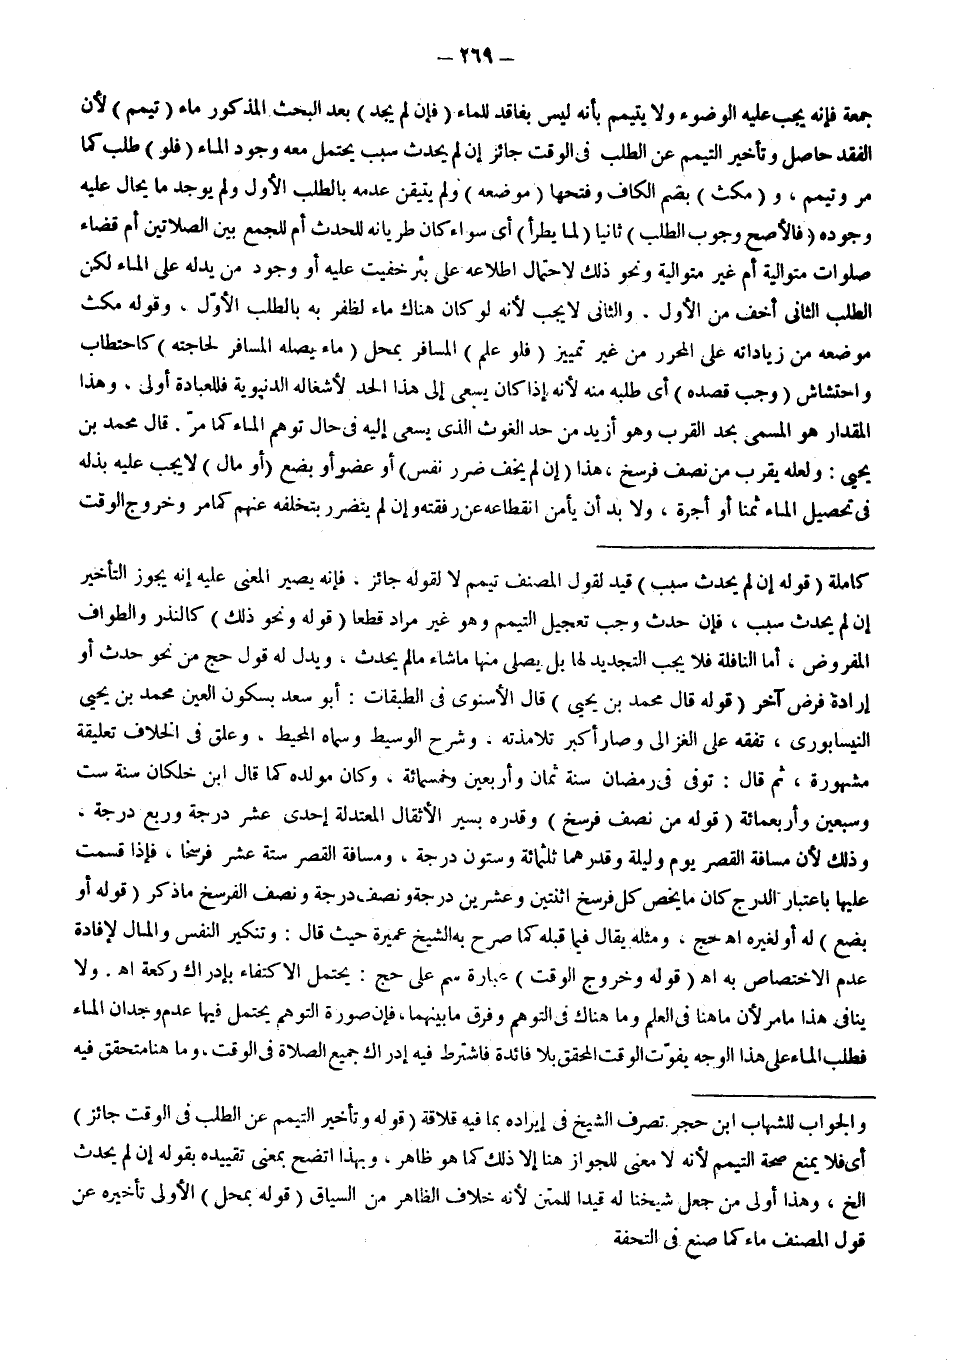 – ٢٦٩ –
جمعة فإنه يجب عليه الوضوء ولا يتيمم بأنه ليس بفاقد للماء ( فإن لم يجد ) بعد البحث المذكور ماء ( تيمم ) لأن
الفقد حاصل وتأخير التيمم عن الطلب فى الوقت جائز إن لم يحدث سبب يحتمل معه وجود الماء ( فلو ) طلب كما
مر وتيمم ، و ( مكث ) بضم الكاف وفتحها ( موضعه ) ولم يتيقن عدمه بالطلب الأول ولم يوجد ما يحال عليه
وجوده ( فالأصح وجوب الطلب ) ثانيا ( لما يطرأ ) أى سواء كان طريانه للحدث أم للجمع بين الصلاتين أم قضاء
صلوات متوالية أم غير متوالية ونحو ذلك لاحتمال اطلاعه على بئر خفيت عليه أو وجود من يدله على الماء لكن
الطلب الثانى أخف من الأول . والثانى لا يجب لأنه لو كان هناك ماء لظفر به بالطلب الأوّل . وقوله مكث
موضعه من زياداته على المحرر من غير تمييز ( فلو علم ) المسافر بمحل ( ماء يصله المسافر لحاجته ) كاحتطاب
واحتشاش ( وجب قصده ) أى طلبه منه لأنه إذا كان يسعى إلى هذا الحد لأشغاله الدنيوية فللعبادة أولى . وهذا
المقدار هو المسمى بحد القرب وهو أزيد من حد الغوث الذى يسعى إليه فى حال توهم الماء كما مرّ . قال محمد بن
يحيى : ولعله يقرب من نصف فرسخ ، هذا ( إن لم يخف ضرر نفس ) أو عضو أو بضع ( أو مال ) لا يجب عليه بذله
فى تحصيل الماء ثمنا أو أجرة ، ولا بد أن يأمن انقطاعه عن رفقته وإن لم يتضرر بتخلفه عنهم كما مر وخروج الوقت
كاملة ( قوله إن لم يحدث سبب ) قيد لقول المصنف تيمم لا لقوله جائز . فإنه يصير المعنى عليه إنه يجوز التأخير
إن لم يحدث سبب ، فإن حدث وجب تعجيل التيمم وهو غير مراد قطعا ( قوله ونحو ذلك ) كالنذر والطواف
المفروض ، أما النافلة فلا يجب التجديد لها بل يصلى منها ماشاء مالم يحدث ، ويدل له قول حج من نحو حدث أو
إرادة فرض آخر ( قوله قال محمد بن يحيى ) قال الأسنوى فى الطبقات : أبو سعد بسكون العين محمد بن يحيى
النيسابورى ، تفقه على الغزالى وصار أكبر تلامذته . وشرح الوسيط وسماه المحيط . وعلق فى الخلاف تعليقة
مشهورة ، ثم قال : توفى فى رمضان سنة ثمان وأربعين وخمسمائة . وكان مولده كما قال ابن خلكان سنة ست
وسبعين وأربعمائة ( قوله من نصف فرسخ ) وقدره بسير الأثقال المعتدلة إحدى عشر درجة وربع درجة .
وذلك لأن مسافة القصر يوم وليلة وقدرهما ثلثمائة وستون درجة ، ومسافة القصر ستة عشر فرسخا ، فإذا قسمت
عليها باعتبار الدرج كان ما يخص كل فرسخ اثنتين وعشرين درجة ونصف درجة ونصف الفرسخ ماذكر ( قوله أو
بضع ) له أو لغيره اه حج ، ومثله يقال فيما قبله كما صرح به الشيخ عميرة حيث قال : وتنكير النفس والمال لإفادة
عدم الاختصاص به اه ( قوله وخروج الوقت ) عبارة سم على حج : يحتمل الاكتفاء بإدراك ركعة اه . ولا
ينافى هذا مامر لأن ماهنا فى العلم وما هناك فى التوهم وفرق مابينهما ، فإن صورة التوهم يحتمل فيها عدم وجدان الماء
فطلب الماء على هذا الوجه يفوّت الوقت المحقق بلا فائدة فاشترط فيه إدراك جميع الصلاة فى الوقت ، وما هنا متحقق فيه
والجواب للشهاب ابن حجر تصرف الشيخ فى إيراده بما فيه قلاقة ( قوله وتأخير التيمم عن الطلب فى الوقت جائز )
أى فلا يمنع صحة التيمم لأنه لا معنى للجواز هنا إلا ذلك كما هو ظاهر . وبهذا اتضح بمعنى تقييده بقوله إن لم يحدث
الخ ، وهذا أولى من جعل شيخنا له قيدا للمتن لأنه خلاف الظاهر من السياق ( قوله بمحل ) الأولى تأخيره عن
قول المصنف ماء كما صنع فى التحفة